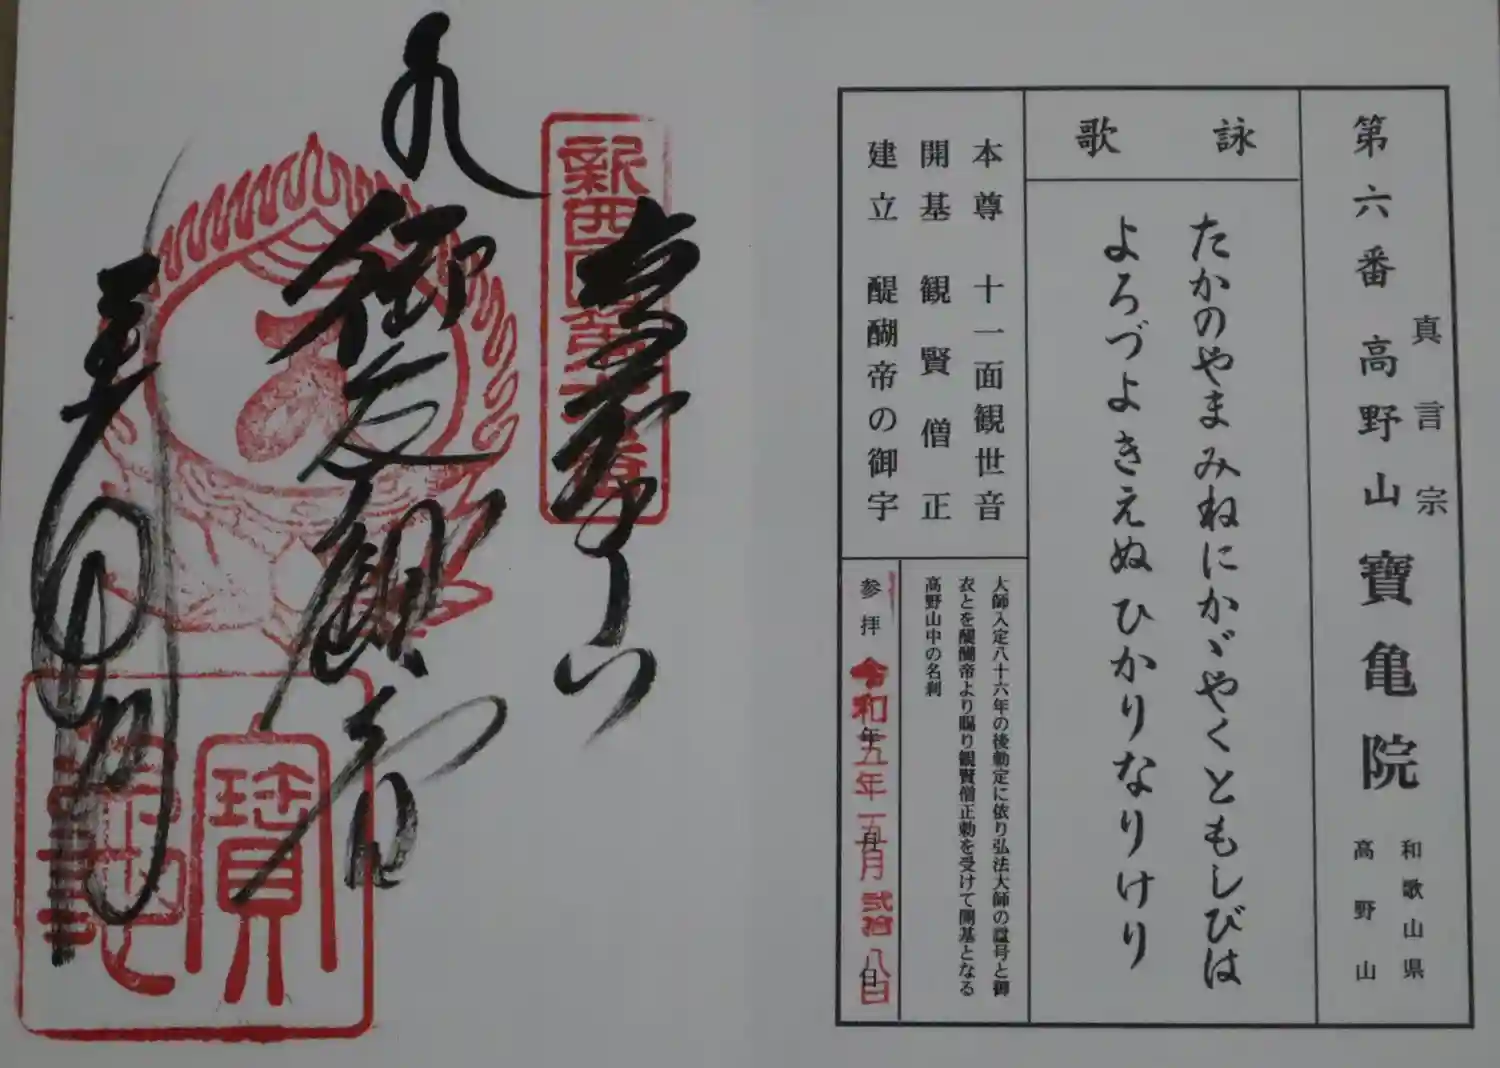 真言宗
第六番 高野山 寶亀院
和歌山県
高野山
詠歌
たかのやまみねにかゞやくともしびは
よろづよきえぬひかりなりけり
本尊 十一面観世音
開基 観賢僧正
建立 醍醐帝の御宇
大師入定八十六年の後勅定に依り弘法大師の諡号と御
衣とを醍醐帝より賜り観賢僧正勅を受けて開基となる
高野山中の名刹
参拝 令和五年五月弐拾八日
新西国第六番
高野山
御衣観音
寶亀